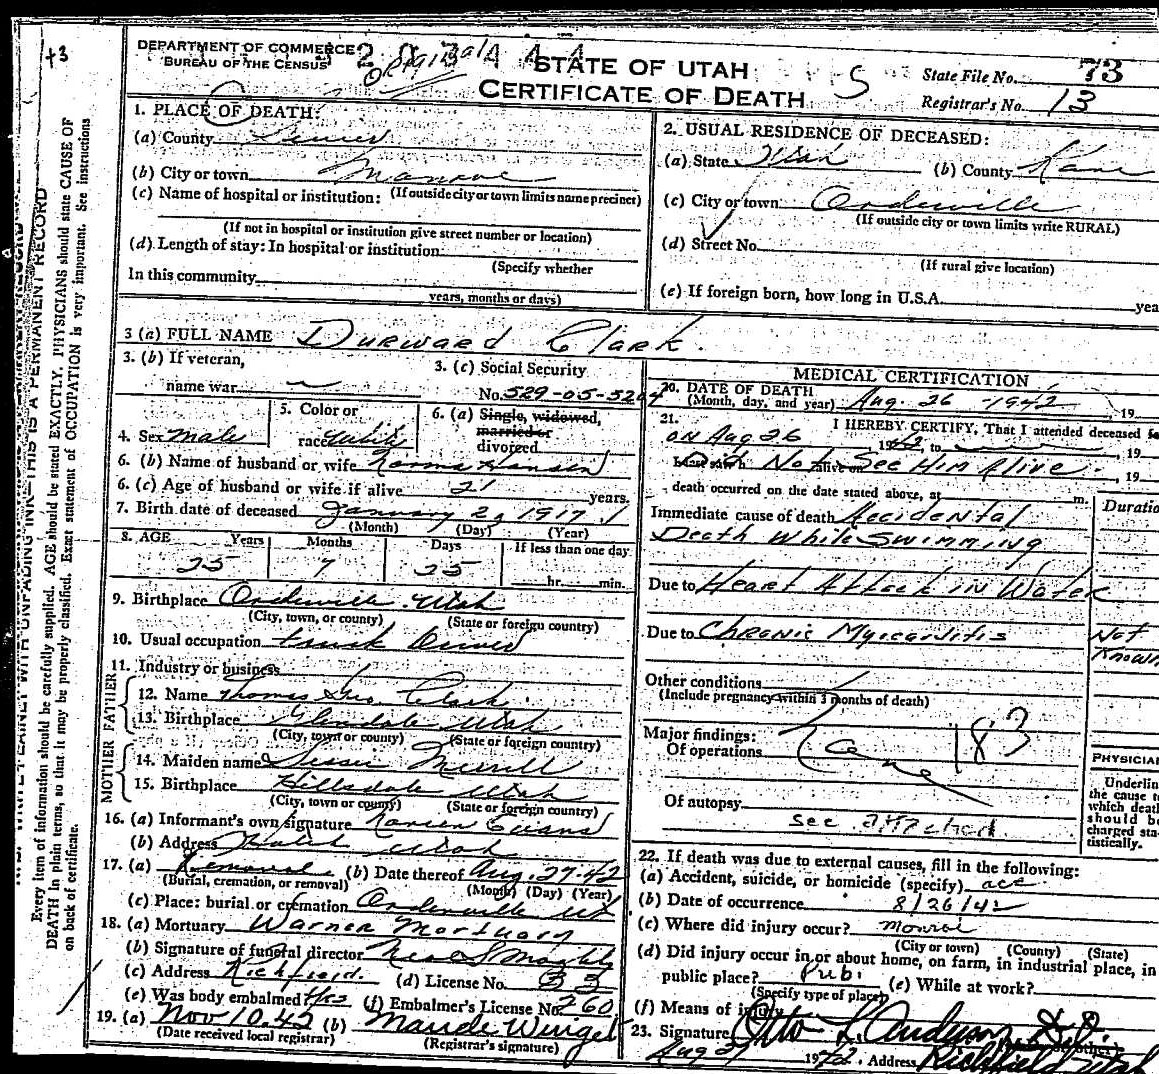 DEPARTMENT OF COMMERCE
BUREAU OF THE CENSUS
Original
STATE OF UTAH
CERTIFICATE OF DEATH
S
State File No. 73
Registrar's No. 13
1. PLACE OF DEATH:
(a) County Sevier
(b) City or town Monroe
(If outside city or town limits name precinct)
(c) Name of hospital or institution:
(If not in hospital or institution give street number or location)
(d) Length of stay: In hospital or institution
(Specify whether
In this community
years, months or days)
2. USUAL RESIDENCE OF DECEASED:
(a) State Utah (b) County Kane
(c) City or town Orderville
(If outside city or town limits write RURAL)
(d) Street No.
(If rural give location)
(e) If foreign born, how long in U.S.A. yea
3 (a) FULL NAME Durward Clark.
3. (b) If veteran,
name war
3. (c) Social Security
No. 529-05-5204
4. Sex male
5. Color or
race white
6. (a) Single, widowed,
married or
divorced
6. (b) Name of husband or wife Norma Hansen
6. (c) Age of husband or wife if alive 21 years.
7. Birth date of deceased January 2, 1917
(Month) (Day) (Year)
8. AGE Years Months Days If less than one day
25 7 25 hr. min.
9. Birthplace Orderville Utah
(City, town, or county) (State or foreign country)
10. Usual occupation truck Driver
11. Industry or business
FATHER
12. Name Thomas Geo. Clark
13. Birthplace Glendale Utah
(City, town or county) (State or foreign country)
MOTHER
14. Maiden name Merrill
15. Birthplace Hillsdale Utah
(City, town or county) (State or foreign country)
16. (a) Informant's own signature Evans
(b) Address Utah
17. (a) Removal (b) Date thereof Aug. 27-42
(Burial, cremation, or removal) (Month) (Day) (Year)
(c) Place: burial or cremation Orderville Ut
18. (a) Mortuary Warner Mortuary
(b) Signature of funeral director
(c) Address Richfield. (d) License No. 33
(e) Was body embalmed? Yes (f) Embalmer's License No. 260
19. (a) Nov 10-42 (b) Maude Winget
(Date received local registrar) (Registrar's signature)
MEDICAL CERTIFICATION
20. DATE OF DEATH
(Month, day, and year) Aug. 26 -1942 , 19
21. I HEREBY CERTIFY, That I attended deceased
on Aug 26 1942, to , 19
Did Not See Him Alive. , 19
death occurred on the date stated above, at m.
Duratio
Immediate cause of death Accidental
Death While Swimming
Due to Heart Attack in Water
Due to Chronic Myicarditis
Not
Known
Other conditions
(Include pregnancy within 3 months of death)
Major findings:
Of operations
183
Of autopsy
see attached
PHYSICIAN
Underlin
the cause t
which deat
should be
charged sta-
tistically.
22. If death was due to external causes, fill in the following:
(a) Accident, suicide, or homicide (specify) acc
(b) Date of occurrence 8/26/42
(c) Where did injury occur? Monroe
(City or town) (County) (State)
(d) Did injury occur in or about home, on farm, in industrial place, in
public place? Pub. (e) While at work?
(Specify type of place)
(f) Means of injury
23. Signature Otto L. Anderson
Aug 27 1942. Address Richfield Utah
Every item of information should be carefully supplied. AGE should be stated EXACTLY. PHYSICIANS should state CAUSE OF
DEATH in plain terms, so that it may be properly classified. Exact statement of OCCUPATION is very important. See instructions
on back of certificate.